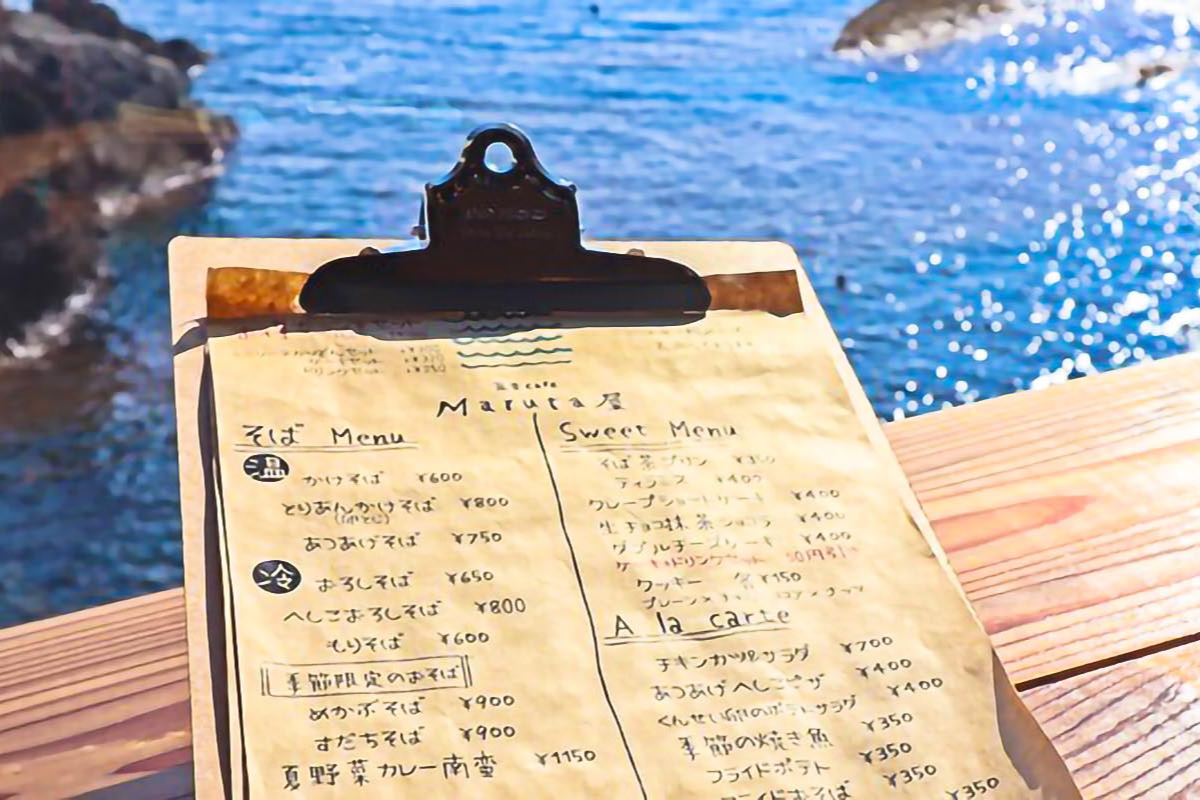 Maruta屋
そば Menu
温
かけそば ¥600
とりあんかけそば ¥800
あつあげそば ¥750
冷
おろしそば ¥650
へしこおろしそば ¥800
もりそば ¥600
季節限定のおそば
めかぶそば ¥900
すだちそば ¥900
夏野菜カレー南蛮 ¥1150
Sweet Menu
そば茶プリン ¥350
¥400
クレープショートケーキ ¥400
生チョコ抹茶ショコラ ¥400
ダブルチーズケーキ ¥400
クッキー 各¥150
A la carte
チキンカツ&サラダ ¥700
あつあげへしこピザ ¥400
くんせい卵のポテトサラダ ¥400
季節の焼き魚 ¥350
フライドポテト ¥350
¥350
¥350